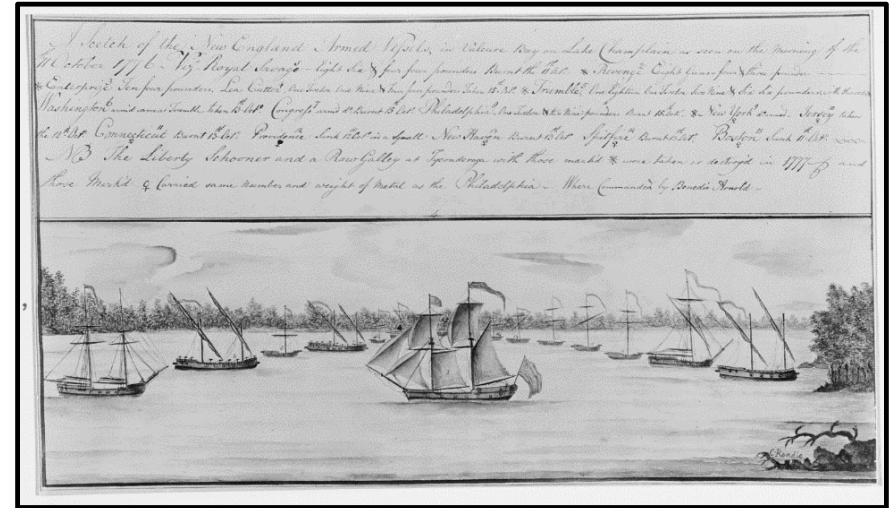 A Scetch of the New England Armed Vessels, in Valcure Bay on Lake Champlain as seen on the Morning of the
11 October 1776 Viz Royal Savage eight Six & four four pounders Burnt the 11 Oct. Revenge Eight Guns four & three pounders
Enterprize Ten four pounders, Lee Cutter, One Twelve One Nine & four four pounders Taken 15 Oct. Trumble, One Eighteen One Twelve Two Nine & Six Six pounders
Washington Trumble taken 13 Oct. Congress Burnt 13 Oct. Philadelphia, One Twelve & two Nine pounders Sunk Oct. New York Jersey taken
the Oct. Connecticut Burnt 13 Oct. Providence, Sunk Oct. New Haven Burnt 13 Oct. Spitfire Burnt Oct. Boston, Sunk Oct.
NB The Liberty Schooner and a Row Galley at Ticonderoga with those mark'd were taken or destroy'd in 1777 and
those Mark'd Carried same number and weight of Metal as the Philadelphia - Where Commanded by Benedic Arnold -
C Randle